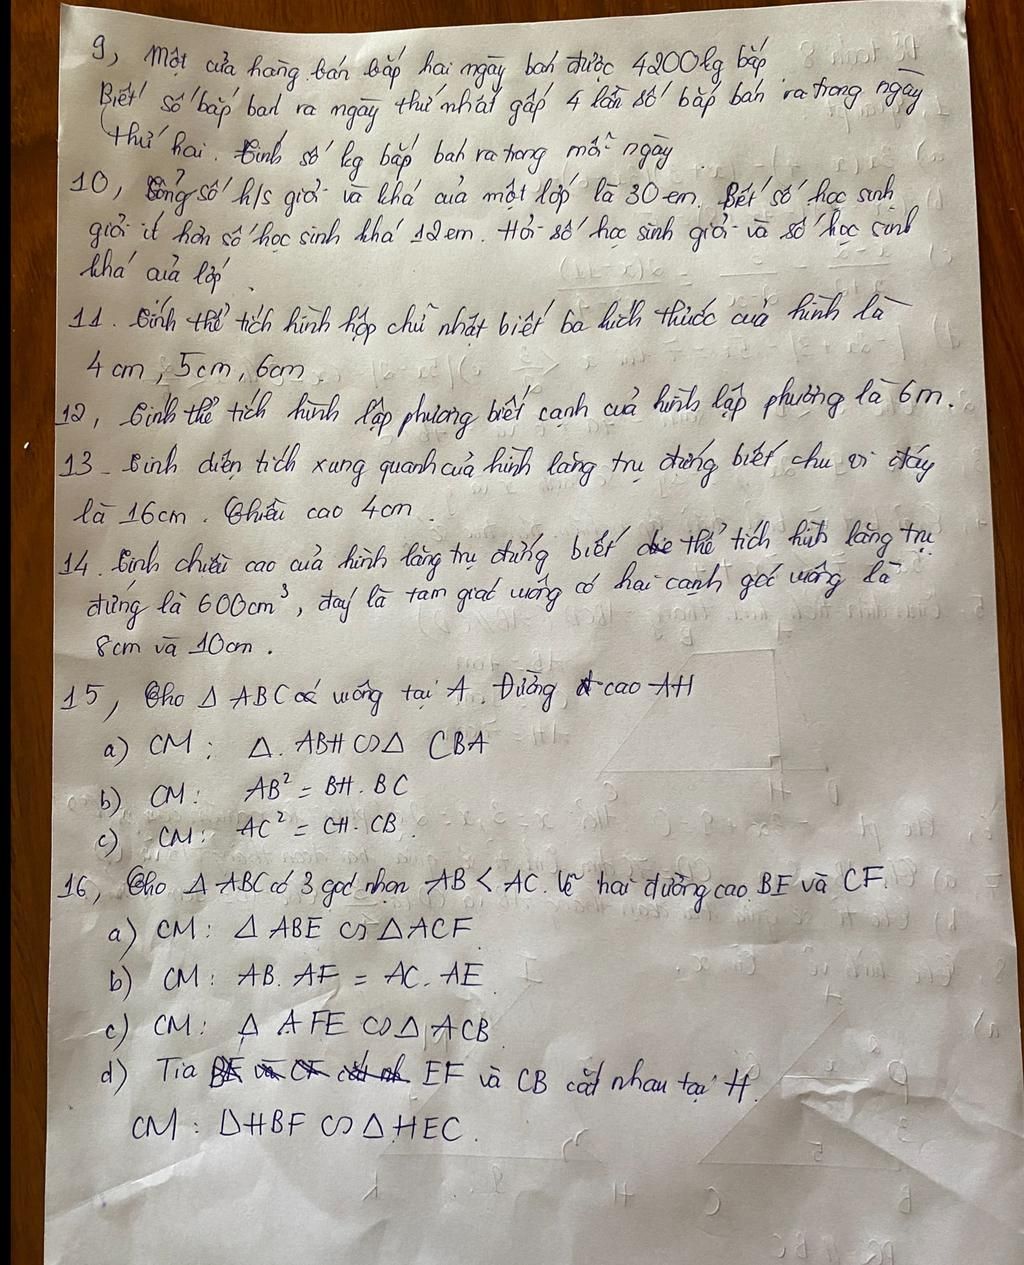 9, Một cửa hàng bán bắp hai ngày bán được 4200kg bắp
Biết số bắp bán ra ngày thứ nhất gấp 4 lần số bắp bán ra trong ngày
thứ hai. Tính số kg bắp bán ra trong mỗi ngày
10, Tổng số h/s giỏi và khá của một lớp là 30 em. Biết số học sinh
giỏi ít hơn số học sinh khá 12 em. Hỏi số học sinh giỏi và số học sinh
khá của lớp.
11. Tính thể tích hình hộp chữ nhật biết ba kích thước của hình là
4 cm, 5cm, 6cm
12, Tính thể tích hình lập phương biết cạnh của hình lập phương là 6m.
13 - Tính diện tích xung quanh của hình lăng trụ đứng biết chu vi đáy
là 16cm. Chiều cao 4cm.
14. Tính chiều cao của hình lăng trụ đứng biết thể tích hình lăng trụ
đứng là 600cm³, đáy là tam giác vuông có hai cạnh góc vuông là
8cm và 10cm.
15, Cho Δ ABC vuông tại A. Đường cao AH
a) CM: Δ. ABH ∽ Δ CBA
b) CM: AB² = BH. BC
c) CM: AC² = CH. CB.
16, Cho Δ ABC có 3 góc nhọn AB < AC. Vẽ hai đường cao BE và CF.
a) CM: Δ ABE ∽ Δ ACF
b) CM: AB. AF = AC. AE
c) CM: Δ AFE ∽ Δ ACB
d) Tia EF và CB cắt nhau tại H.
CM: ΔHBF ∽ Δ HEC.